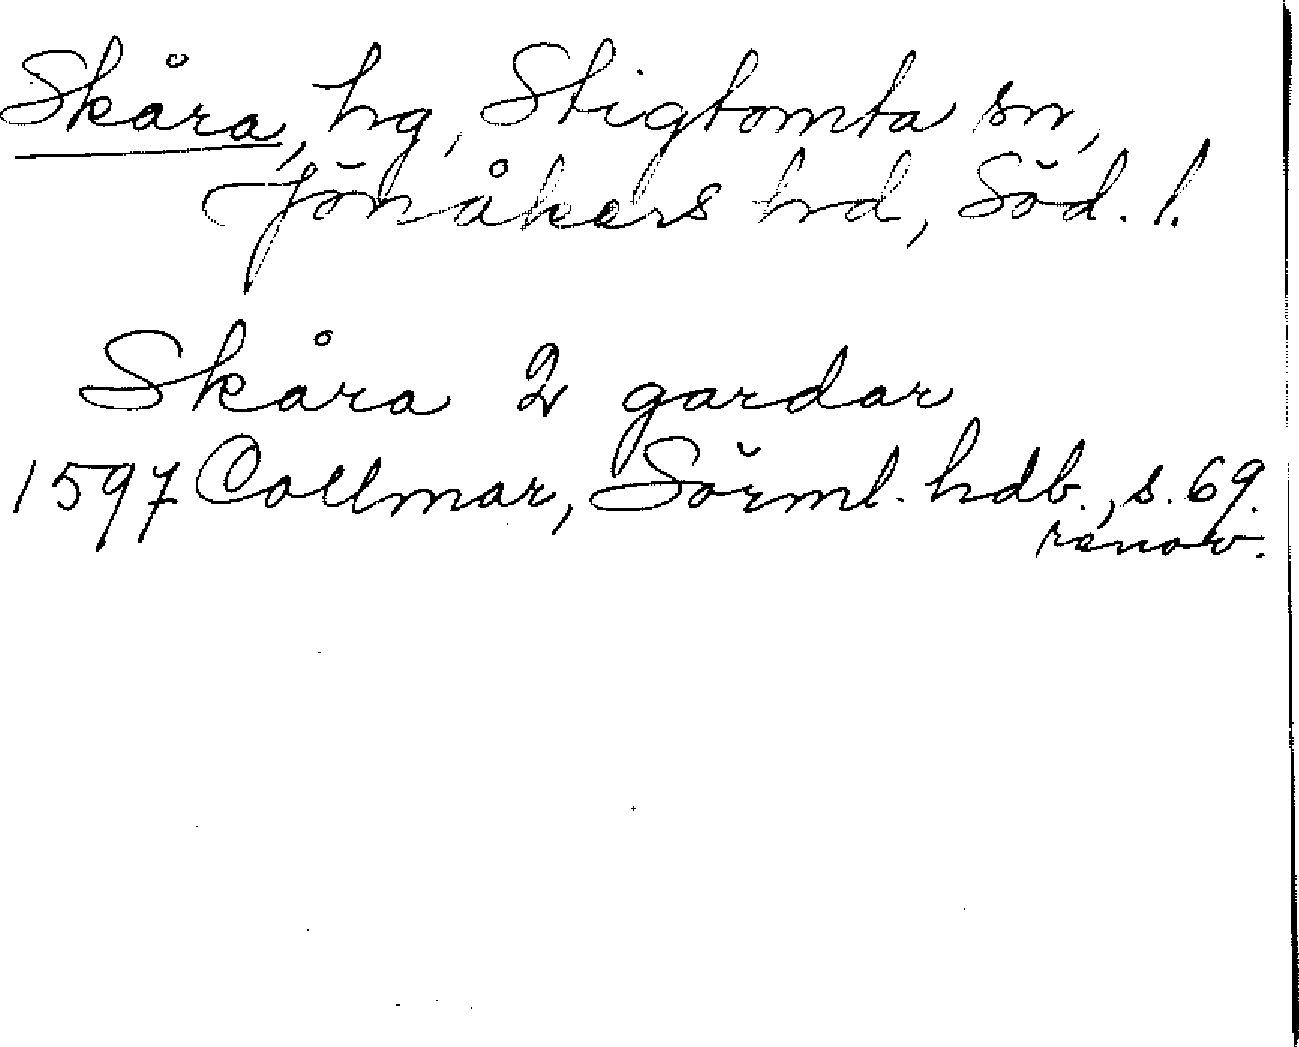 Skåra, hg, Stigtomta sn,
Jönåkers hd, Söd. l.
Skåra 2 gardar
1597 Collmar, Sörml. hdb., s. 69.
renov.